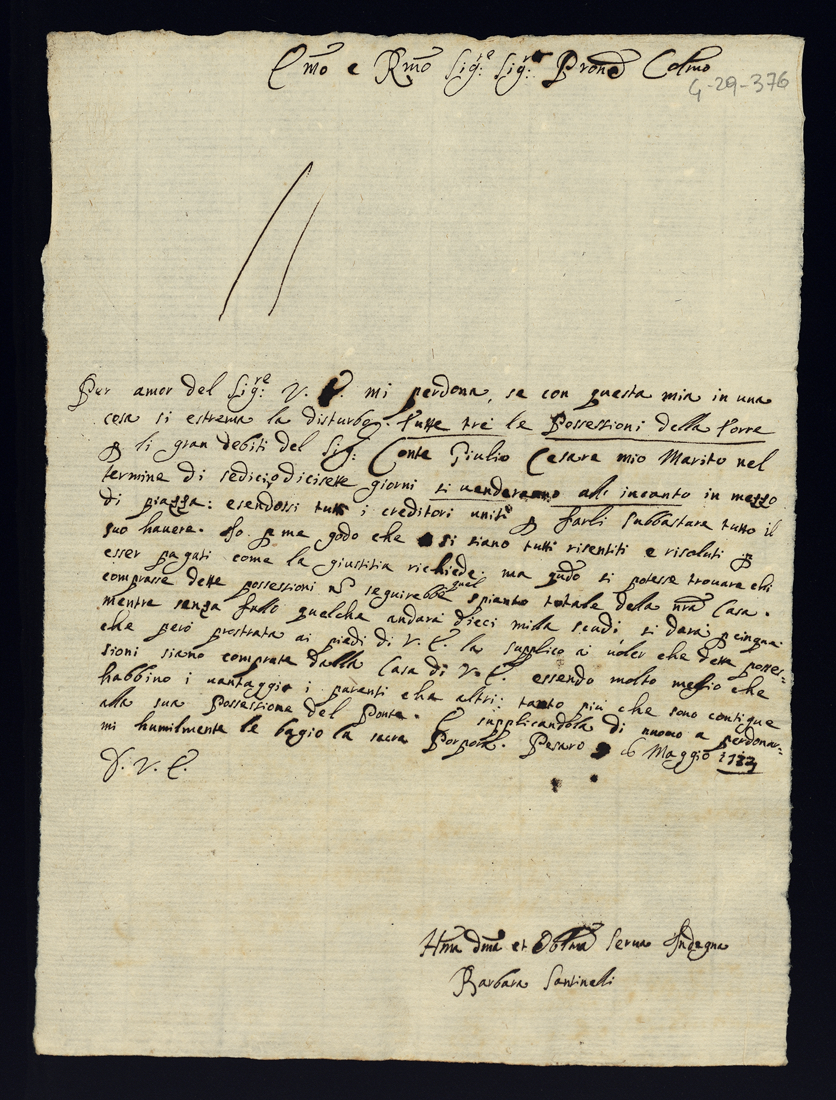 Emo e Rmo Sig:re Sig:re Prone Colmo
4-29-376
Per amor del Sig:re V. E. mi perdona, se con questa mia in una
cosa si estrema la disturbo. Tutte tre le Possessioni della Torre
p li gran debiti del Sig: Conte Giulio Cesare mio Marito nel
termine di sedici o dicisette giorni si venderanno all' incanto in mezzo
di piazza: esendossi tutti i creditori uniti p farli subbastare tutto il
suo havere. Io p me godo che si siano tutti risentiti e risoluti p
esser pagati come la giustitia richiede: ma qndo si potesse trovare chi
comprasse dette possessioni nō seguirebbe quel spianto totale della nra Casa.
mentre senza fallo quelche andarà dieci milla scudi, si darà p cinque
che però prostrata ai piedi di V. E. la supplico à voler che dette posses=
sioni siano comprate dalla Casa di V. E. essendo molto meglio che
habbino i vantaggi i parenti che altri: tanto più che sono contigue
alla sua Possessione del Ponte. E supplicandola di nuovo a perdonar=
mi humilmente le bagio la sacra Porpora. Pesaro 6 Maggio
D. V. E.
Hma Dma et Obblma Serva Indegna
Barbara Santinelli